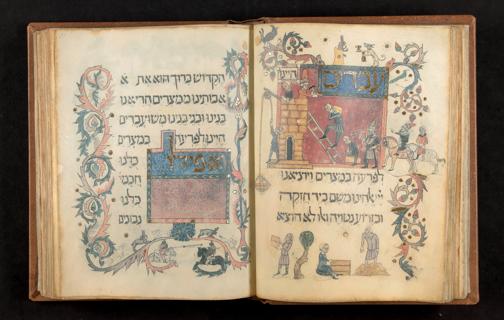 עבדים
היינו
לפרעה במצרים ויוציאנו
ייי אלהינו משם ביד חזקה
ובזרוע נטויה ואלו לא הוציא
הקדוש ברוך הוא את א
אבותינו ממצרים הרי אנו
בנינו ובני בנינו משועבדים
היינו לפרעה במצרים
ואפילו
כלנו
חכמי
כלנו
נבונים